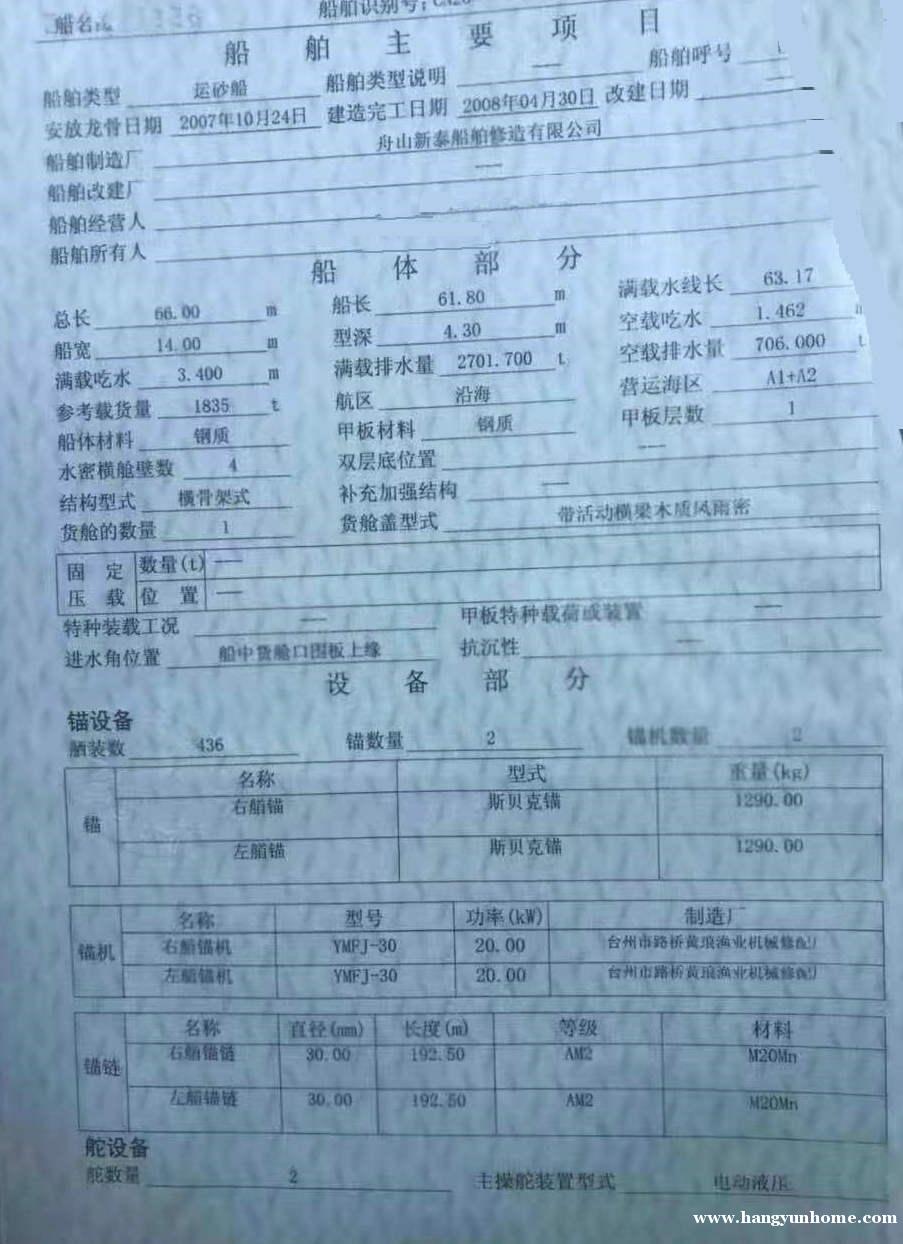 船名:
船舶识别号:
船舶主要项目
船舶类型 运砂船 船舶类型说明 —— 船舶呼号
安放龙骨日期 2007年10月24日 建造完工日期 2008年04月30日 改建日期
船舶制造厂 舟山新泰船舶修造有限公司
船舶改建厂 ——
船舶经营人
船舶所有人
船体部分
总长 66.00 m 船长 61.80 m 满载水线长 63.17
船宽 14.00 m 型深 4.30 m 空载吃水 1.462
满载吃水 3.400 m 满载排水量 2701.700 t 空载排水量 706.000 t
参考载货量 1835 t 航区 沿海 营运海区 A1+A2
船体材料 钢质 甲板材料 钢质 甲板层数 1
水密横舱壁数 4 双层底位置 ——
结构型式 横骨架式 补充加强结构 ——
货舱的数量 1 货舱盖型式 带活动横梁木质风雨密
固定压载 数量(t) ——
位置 ——
特种装载工况 —— 甲板特种载荷或装置 ——
进水角位置 船中货舱口围板上缘 抗沉性 ——
设备部分
锚设备
舾装数 436 锚数量 2 锚机数量 2
锚 名称 型式 重量(kg)
右艏锚 斯贝克锚 1290.00
左艏锚 斯贝克锚 1290.00
锚机 名称 型号 功率(kW) 制造厂
右艏锚机 YMFJ-30 20.00 台州市路桥黄琅渔业机械修配厂
左艏锚机 YMFJ-30 20.00 台州市路桥黄琅渔业机械修配厂
锚链 名称 直径(mm) 长度(m) 等级 材料
右艏锚链 30.00 192.50 AM2 M20Mn
左艏锚链 30.00 192.50 AM2 M20Mn
舵设备
舵数量 2 主操舵装置型式 电动液压
www.hangyunhome.com